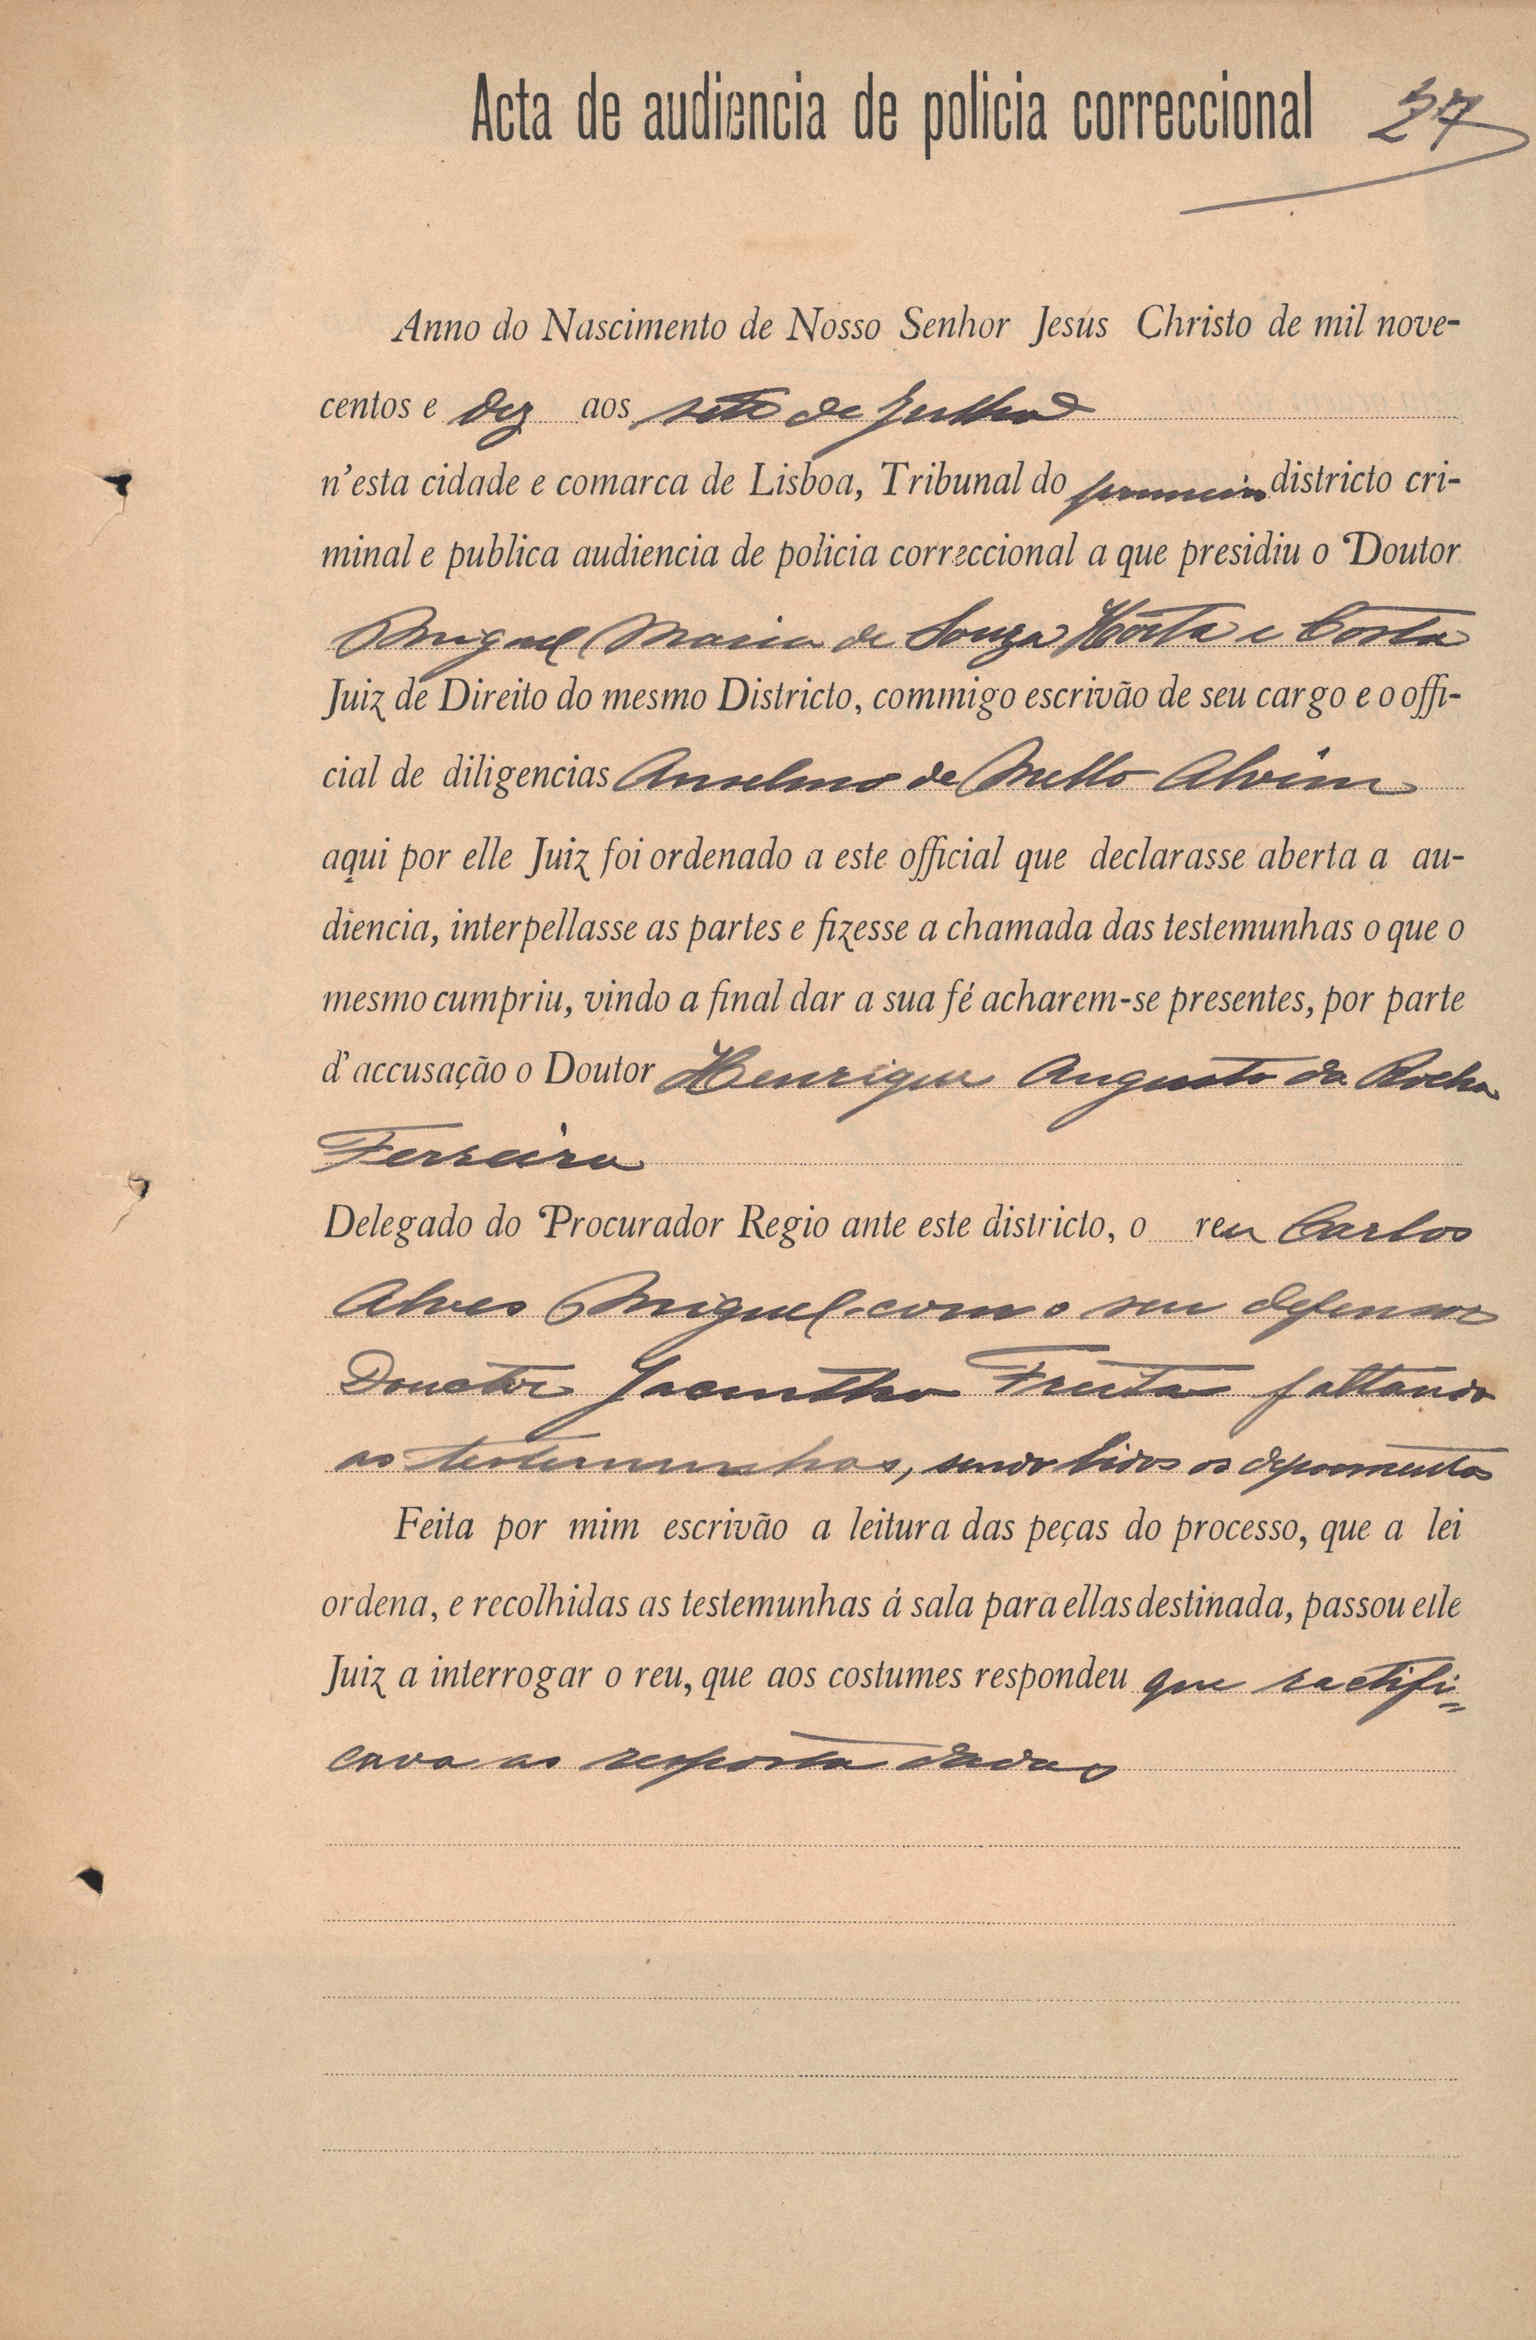 Acta de audiencia de policia correccional 27
Anno do Nascimento de Nosso Senhor Jesús Christo de mil nove-
centos e dez aos sete de Julho
n'esta cidade e comarca de Lisboa, Tribunal do primeiro districto cri-
minal e publica audiencia de policia correccional a que presidiu o Doutor
Miguel Maria de Souza Horta e Costa
Juiz de Direito do mesmo Districto, commigo escrivão de seu cargo e o offi-
cial de diligencias Anselmo de Mello Alvim
aqui por elle Juiz foi ordenado a este official que declarasse aberta a au-
diencia, interpellasse as partes e fizesse a chamada das testemunhas o que o
mesmo cumpriu, vindo a final dar a sua fé acharem-se presentes, por parte
d'accusação o Doutor Henrique Augusto da Rocha
Ferreira
Delegado do Procurador Regio ante este districto, o reu Carlos
Alves Miguel com o seu defensor
Douctor Jacintho Freitas faltando
as testemunhas, sendo lidos os depoimentos
Feita por mim escrivão a leitura das peças do processo, que a lei
ordena, e recolhidas as testemunhas á sala para ellas destinada, passou elle
Juiz a interrogar o reu, que aos costumes respondeu que ractifi=
cava as resposta dadas